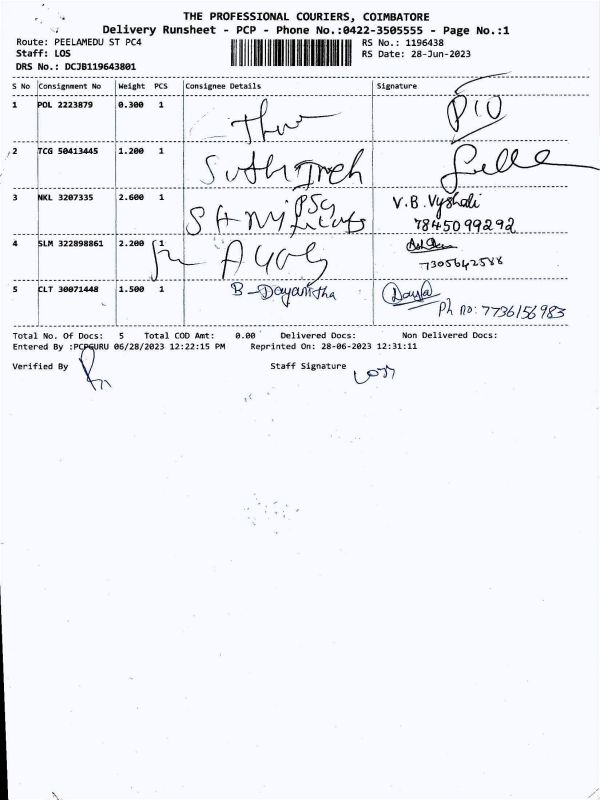 THE PROFESSIONAL COURIERS, COIMBATORE
Delivery Runsheet - PCP - Phone No.:0422-3505555 - Page No.:1
Route: PEELAMEDU ST PC4 RS No.: 1196438
Staff: LOS RS Date: 28-Jun-2023
DRS No.: DCJB119643801
S No Consignment No Weight PCS Consignee Details Signature
1 POL 2223879 0.300 1
2 TCG 50413445 1.200 1
3 NKL 3207335 2.600 1 PSG V.B.Vyshali
7845099292
4 SLM 322898861 2.200 1
7305642588
5 CLT 30071448 1.500 1 B-Dayanitha Daya
Ph no: 7736156983
Total No. Of Docs: 5 Total COD Amt: 0.00 Delivered Docs: Non Delivered Docs:
Entered By :PCPGURU 06/28/2023 12:22:15 PM Reprinted On: 28-06-2023 12:31:11
Verified By Staff Signature